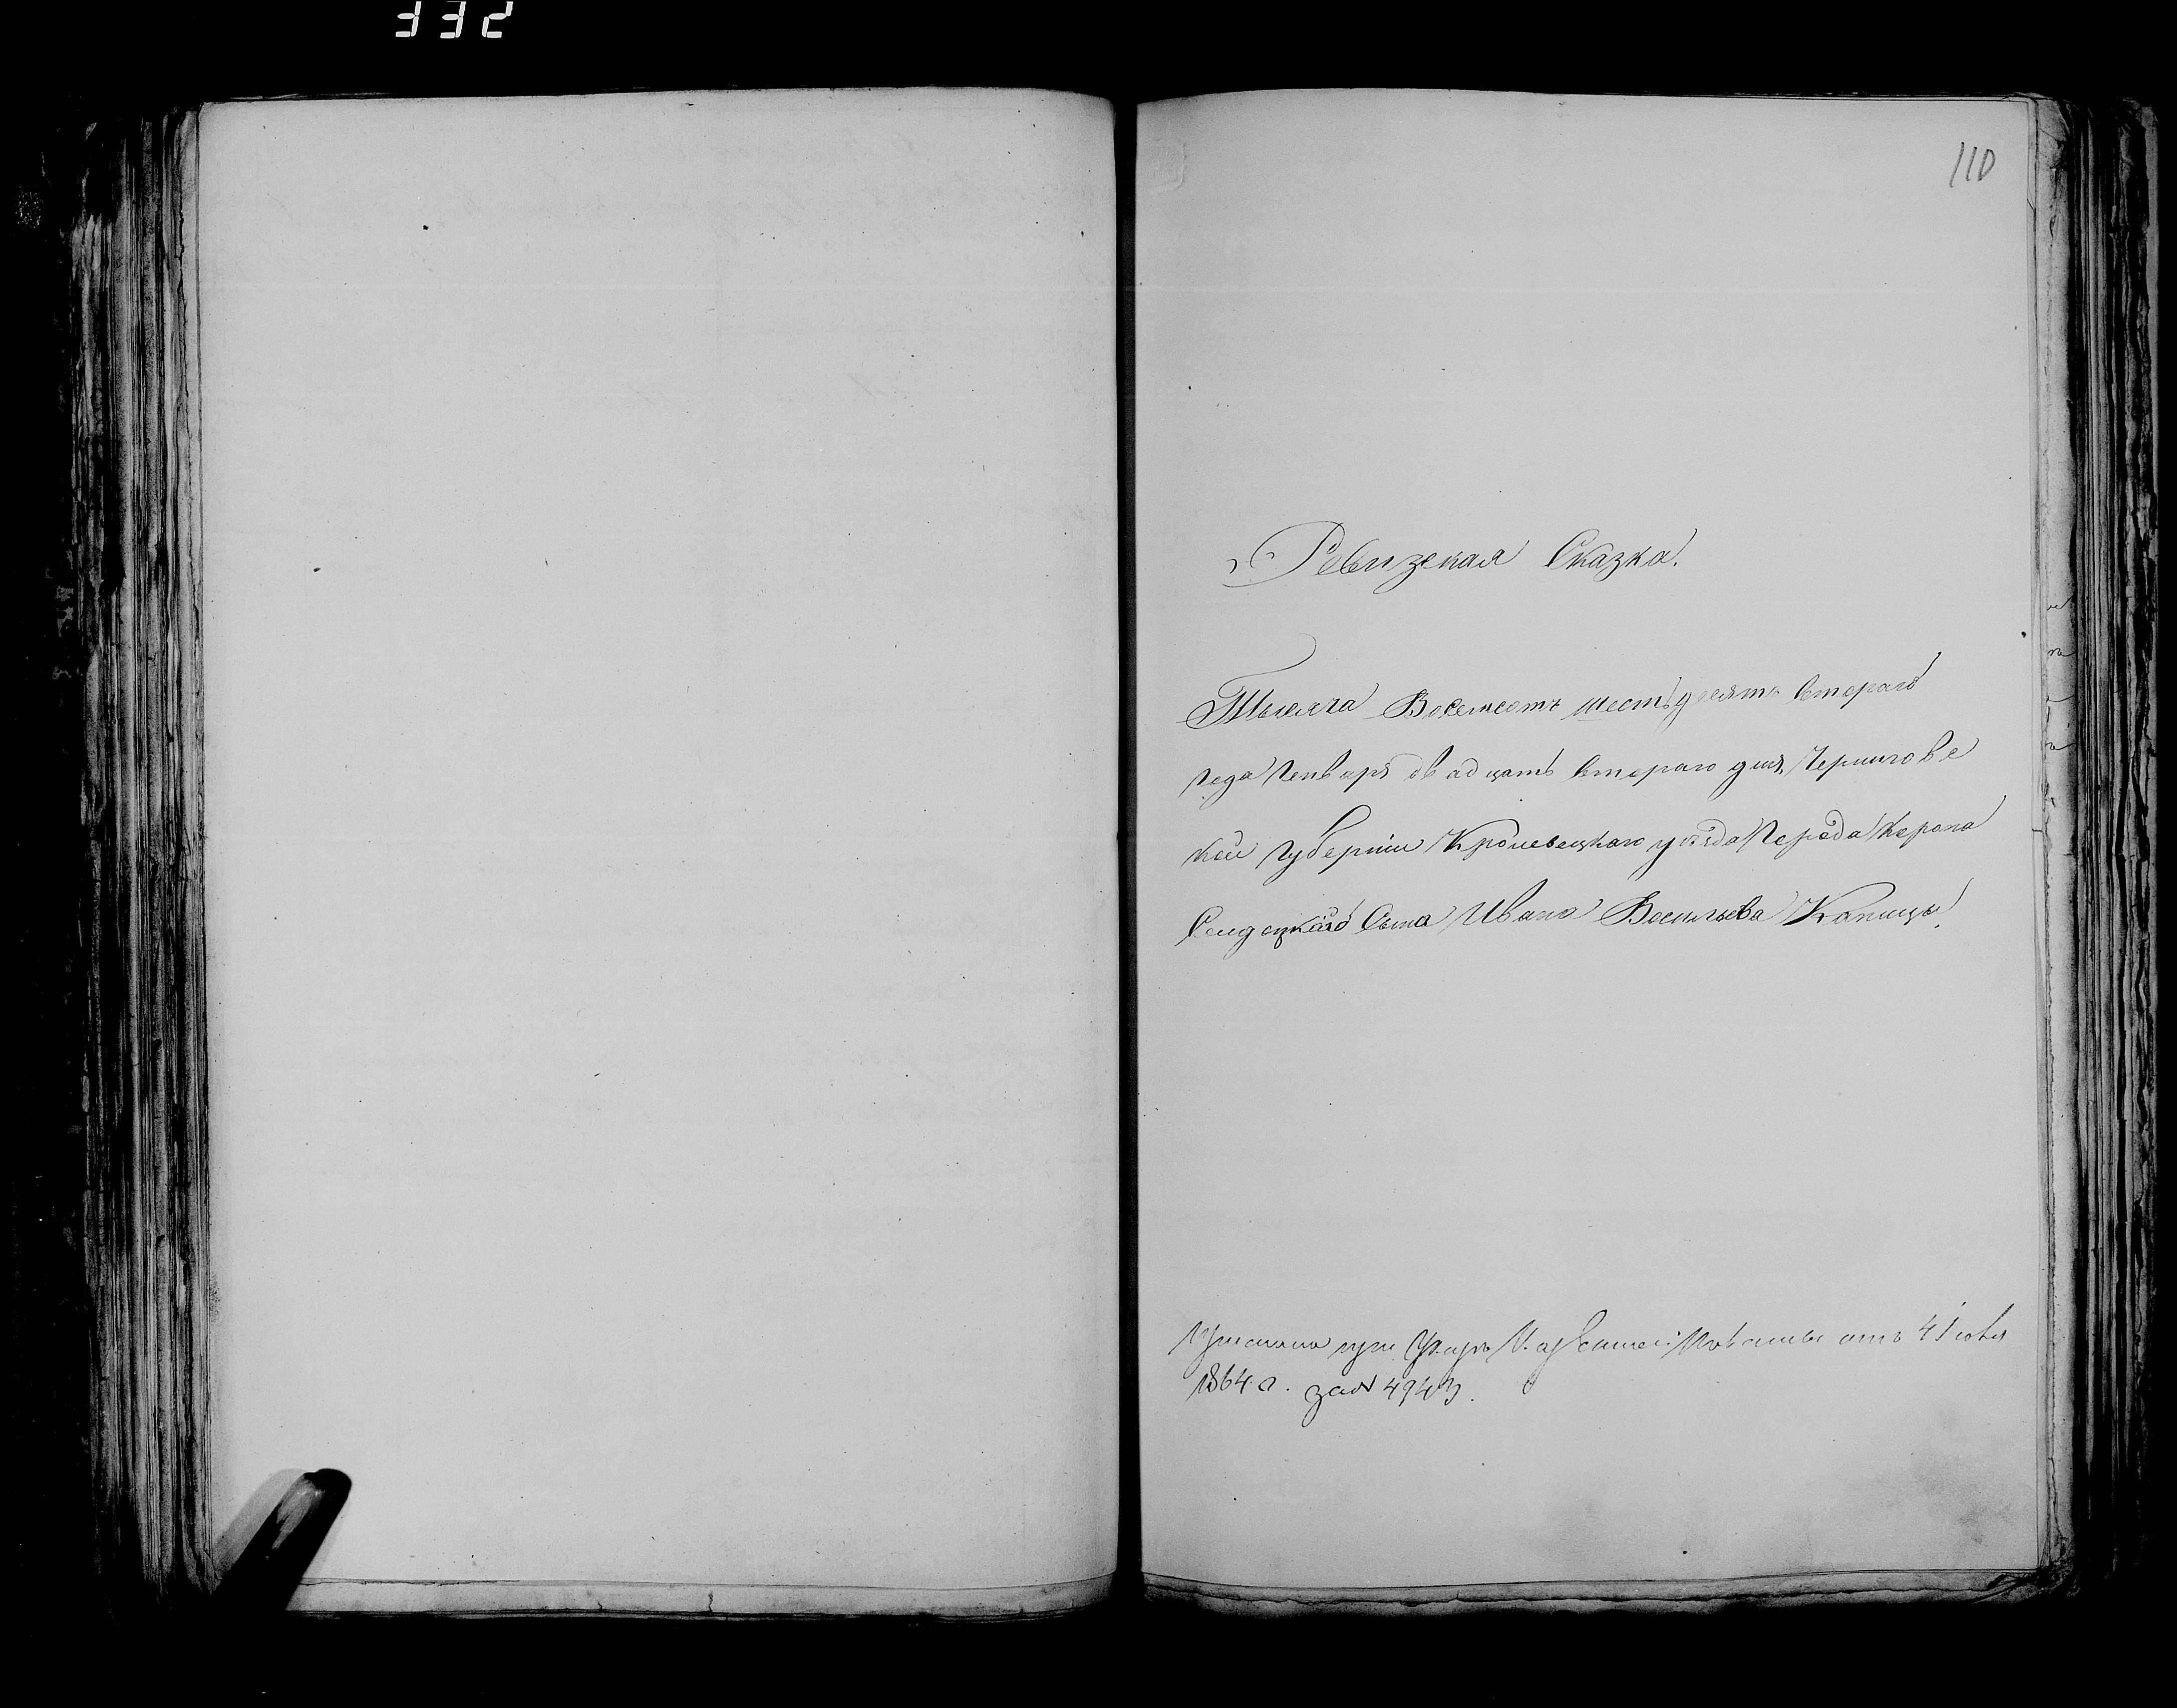 332
110
Ревизская Сказка.
Тысяча Восемсотъ шестьдесятъ втораго
года Генваря двадцать втораго дня, Черниговс
кой Губерніи Кролевецкаго уѣзда Города Коропа
Солдацкаго Сына Ивана Васильева Капицы.
при от 4 Іюля
1864 г. за № 4943.